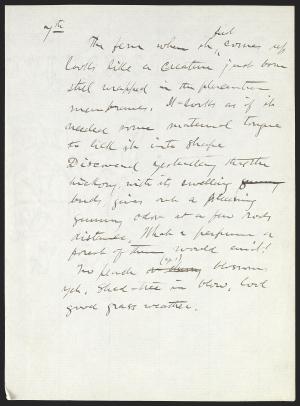 7th
The fern when it first comes up
looks like a creature just born
still wrapped in the placenta
membranes. It looks as if it
needed some maternal tongue
to lick it into shape
Discovered yesterday that the
hickory with its swelling
buds gives out a pleasing
gummy odor at a few rods
distance. What a perfume a
forest of them would emit!
No peach or cherry blossoms
yet. Shad-tree in blow, Cool
good grass weather.